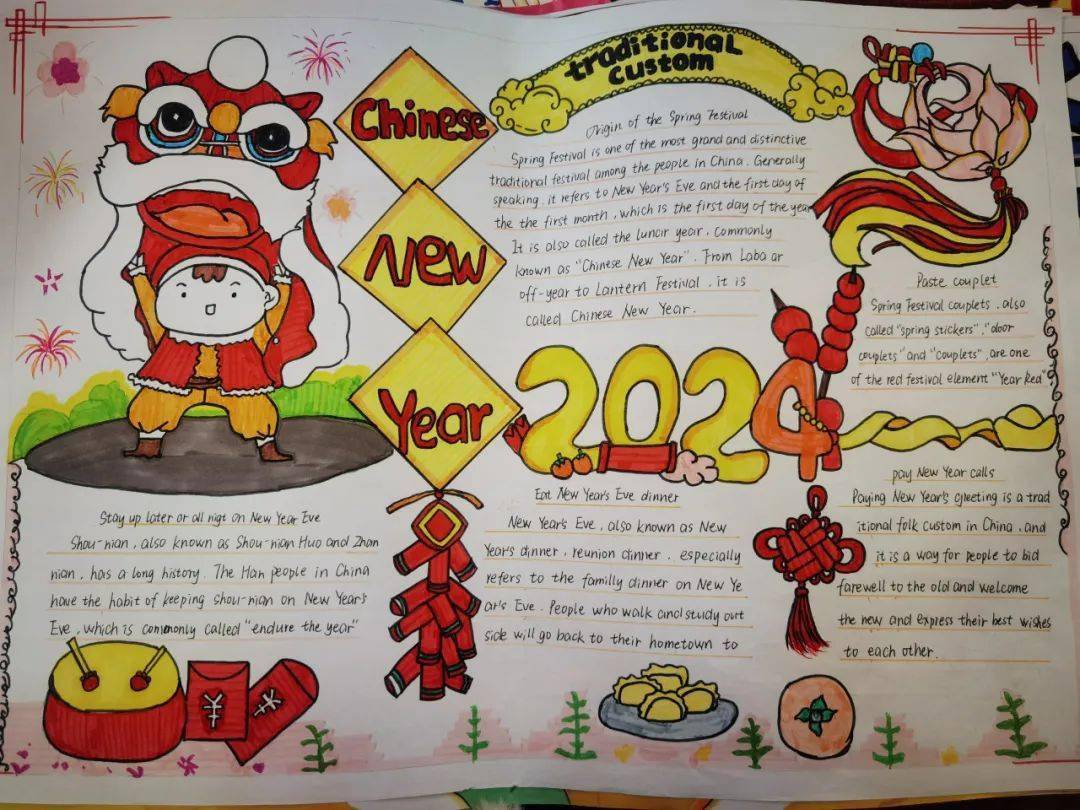 Chinese
New
Year
traditional
custom
Origin of the Spring Festival
Spring Festival is one of the most grand and distinctive
traditional festival among the people in China. Generally
speaking, it refers to New Year's Eve and the first day of
the the first month, which is the first day of the year
It is also called the lunar year, commonly
known as "Chinese New Year". From Laba or
off-year to Lantern Festival, it is
called Chinese New Year.
2024
Paste couplet
Spring Festival couplets, also
called "spring stickers", "door
couplets" and "couplets", are one
of the red festival element "Year Red"
Stay up later or all nigt on New Year Eve
Shou-nian, also known as Shou-nian Huo and Zhan
nian, has a long history. The Han people in China
have the habit of keeping shou-nian on New Year's
Eve, which is commonly called "endure the year"
Eat New Year's Eve dinner
New Year's Eve, also known as New
Year's dinner, reunion dinner, especially
refers to the familly dinner on New Ye
ar's Eve. People who walk and study out
side will go back to their hometown to
pay New Year calls
Paying New Year's greeting is a trad
itional folk custom in China, and
it is a way for people to bid
farewell to the old and welcome
the new and express their best wishes
to each other.